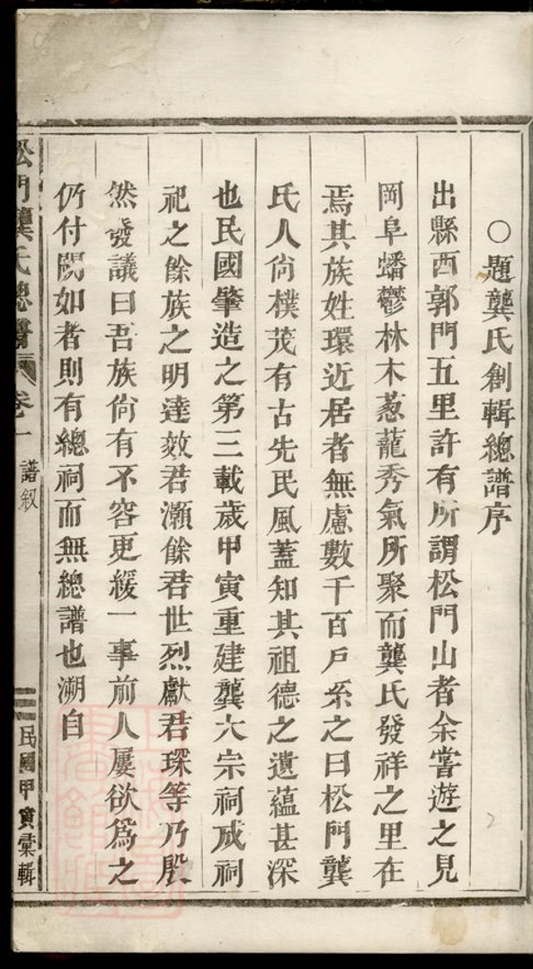 ○題龔氏創輯總譜序
出縣西郭門五里許有所謂松門山者余嘗遊之見
岡阜蟠鬱林木葱蘢秀氣所聚而龔氏發祥之里在
焉其族姓環近居者無慮數千百戶系之曰松門龔
氏人尙樸茂有古先民風蓋知其祖德之遺蘊甚深
也民國肇造之第三載歲甲寅重建龔大宗祠成祠
祀之餘族之明達效君灝餘君世烈獻君琛等乃殷
然發議曰吾族尙有不容更緩一事前人屢欲爲之
仍付闕如者則有總祠而無總譜也溯自
松門龔氏總譜
卷一
譜叙
民國甲寅彙輯